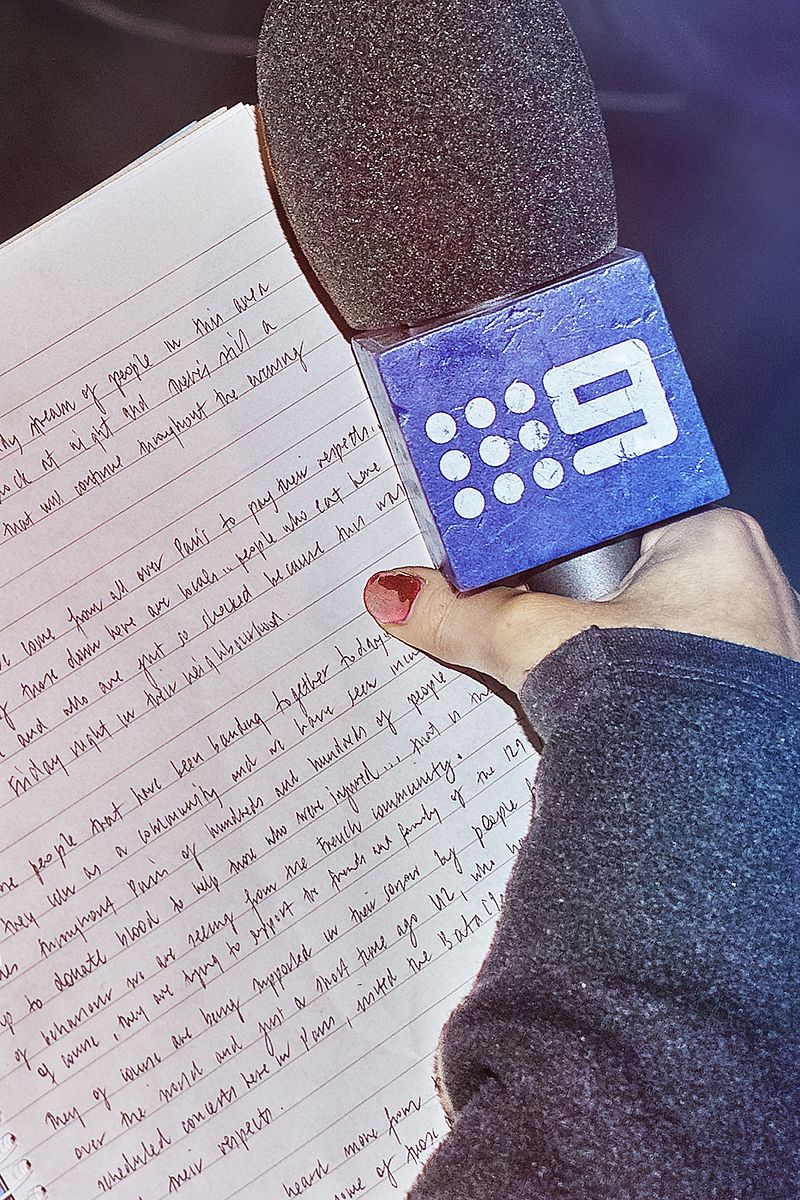 9
stream of people in this area
at night and there's still a
that will continue throughout the evening
come from all over Paris to pay their respects.
of those down here are locals... people who eat here
and who are just so shocked because this was
Friday night in their neighbourhood.
people that have been banding together today
they were as a community and we have seen
throughout Paris of hundreds and hundreds of people
up to donate blood to help those who were injured... that is the
of behaviour we are seeing from the French community.
of course, they are trying to support the friends and family of the 129
they of course are being supported in their despair by people
over the world and just a short time ago U2, who
scheduled concerts here in Paris, visited the
their respects.
heard more from
some of those